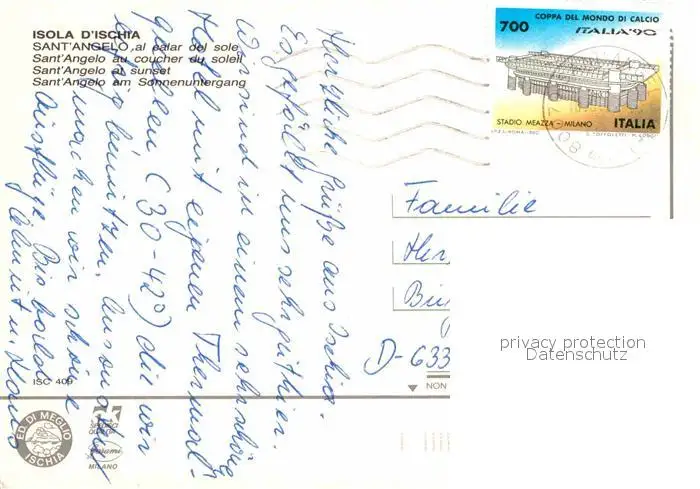 ISOLA D'ISCHIA
SANT'ANGELO al calar del sole
Sant'Angelo au coucher du soleil
Sant'Angelo at sunset
Sant'Angelo am Sonnenuntergang
Herzliche Grüße aus Ischia.
Es gefällt uns sehr gut hier.
Wir sind in einem sehr schönen
Hotel mit eigenen Thermal-
quellen (30-42°) die wir
benützen. Ausserdem
machen wir schöne
Ausflüge. Bis bald
Helmut u.
700
COPPA DEL MONDO DI CALCIO
ITALIA'90
STADIO MEAZZA - MILANO
ITALIA
Familie
D-633
privacy protection
Datenschutz
NON
ISC 409
ED. DI MEGLIO
ISCHIA
MILANO